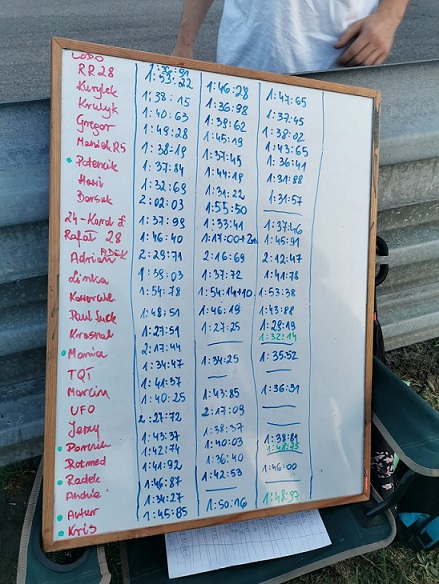 LOBO
RR28 1:53:22 1:46:28 1:47:65
Kurylek 1:38:15 1:36:98 1:37:45
Krulyk 1:40:63 1:38:62 1:38:02
Gregor 1:49:28 1:45:19 1:43:65
Maniek RS 1:38:19 1:37:45 1:36:41
Potencik 1:37:84 1:44:18 1:31:88
Hari 1:32:69 1:31:22 1:31:57
Borsuk 2:02:03 1:55:50 —
24-Karol 1:37:98 1:33:41 1:37:46
Rafał 28 1:46:40 1:17:00+2m 1:45:91
Adrian 2:29:71 2:16:69 2:12:47
Linka 1:39:03 1:37:72 1:41:78
1:54:78 1:54:14+10 1:53:38
Paul Suck 1:48:51 1:46:19 1:43:88
Krasnal 1:27:51 1:27:25 1:28:19
Monika 2:17:44 — 1:32:14
TQI 1:34:47 1:34:25 1:35:52
Marcin 1:41:37 — —
UFO 1:40:25 1:43:85 1:36:31
Jerzy 2:27:72 2:17:09 —
1:43:37 1:38:37 —
Rotmed 1:42:74 1:40:03 1:38:81
Radek 1:41:92 1:36:40 1:48:75
1:46:87 1:42:53 1:46:00
Artur 1:34:27 — —
Kris 1:45:85 1:50:16 1:48:97